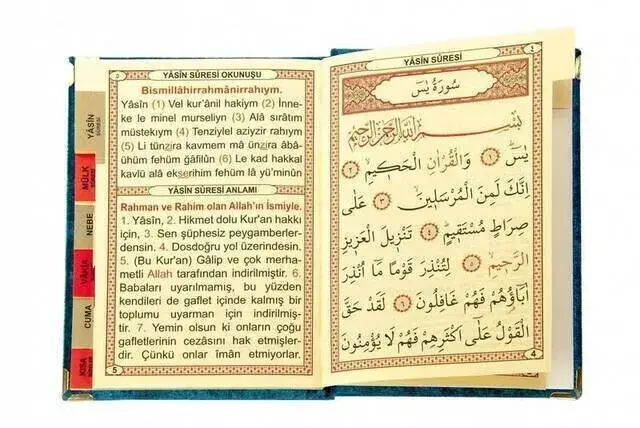 YÂSİN SÛRESİ
MÜLK
NEBE
VÂKIA
CUMA
KISA
YÂSİN SÛRESİ OKUNUŞU
Bismillâhirrahmânirrahıym.
Yâsîn (1) Vel kur'ânil hakiym (2) İnne-
ke le minel murseliyn (3) Alâ sırâtım
müstekıym (4) Tenziylel aziyzir rahıym
(5) Li tünzira kavmem mâ ünzira âbâ-
ühüm fehüm ğâfilûn (6) Le kad hakkal
kavlü alâ ekserihim fehüm lâ yü'minûn
YÂSİN SÛRESİ ANLAMI
Rahman ve Rahim olan Allah'ın İsmiyle.
1. Yâsin, 2. Hikmet dolu Kur'an hakkı
için, 3. Sen şüphesiz peygamberler-
densin. 4. Dosdoğru yol üzerindesin.
5. (Bu Kur'an) Gâlip ve çok merha-
metli Allah tarafından indirilmiştir. 6.
Babaları uyarılmamış, bu yüzden
kendileri de gaflet içinde kalmış bir
toplumu uyarman için indirilmiş-
tir. 7. Yemin olsun ki onların çoğu
gafletlerinin cezasını hak etmişler-
dir. Çünkü onlar îmân etmiyorlar.
5
YÂSİN SÛRESİ
٤
سُورَةُ يٰسۤ
بِسْمِ اللّٰهِ الرَّحْمٰنِ الرَّحِيمِ
يٰسۤ ﴿١﴾ وَالْقُرْاٰنِ الْحَكِيمِ ﴿٢﴾
اِنَّكَ لَمِنَ الْمُرْسَلِينَ ﴿٣﴾ عَلٰى
صِرَاطٍ مُسْتَقِيمٍ ﴿٤﴾ تَنْزِيلَ الْعَزِيزِ
الرَّحِيمِ ﴿٥﴾ لِتُنْذِرَ قَوْمًا مَٓا اُنْذِرَ
اٰبَٓاؤُهُمْ فَهُمْ غَافِلُونَ ﴿٦﴾ لَقَدْ حَقَّ
الْقَوْلُ عَلٰٓى اَكْثَرِهِمْ فَهُمْ لَا يُؤْمِنُونَ
4